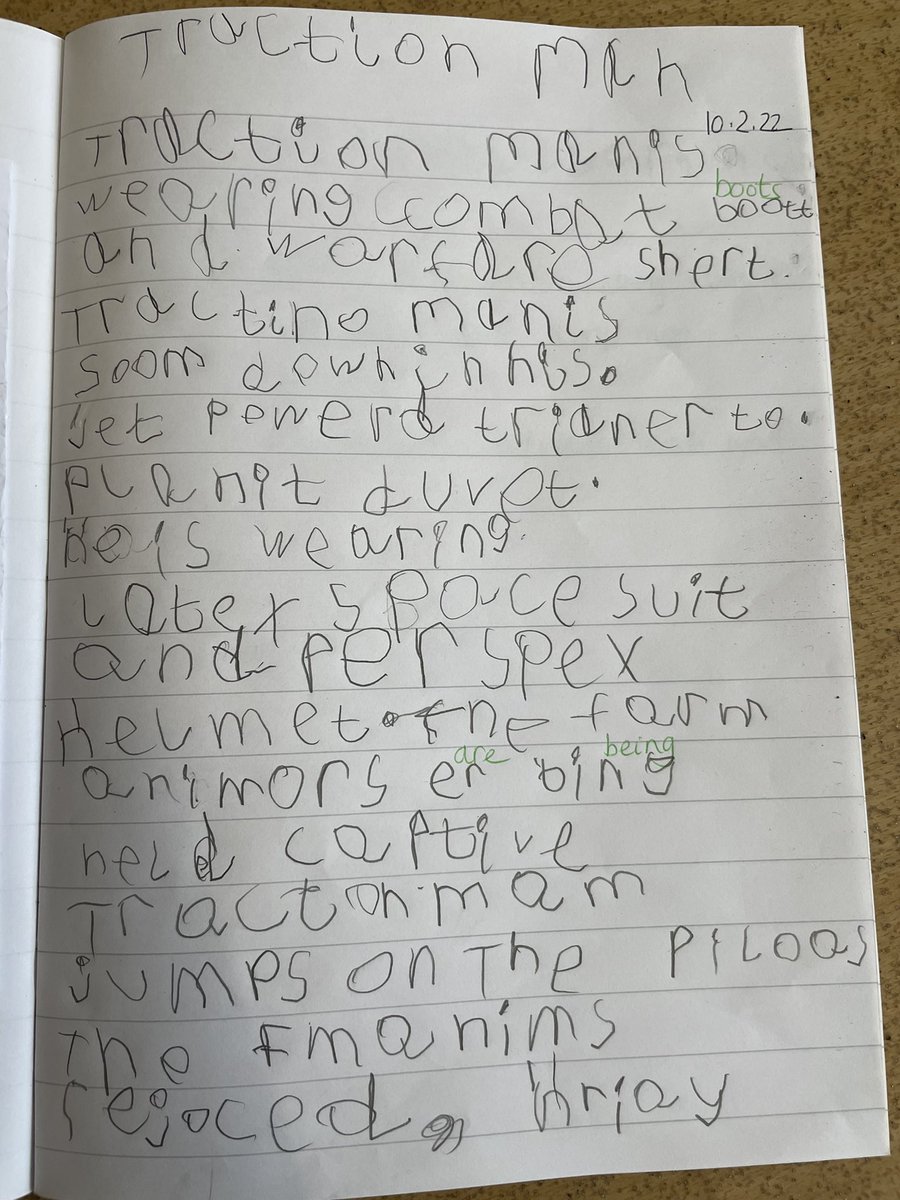 Traction Man
10.2.22
Traction manis
boots
wearing combat boott
and warfaro shert.
Tractino manis
soom downinhis.
jet powerd trianer to.
planit duvot.
heis wearing.
latex space suit
and perspex
helmet. The farm
are being
animors er bing
held captive
Traction mam
jumps on The piloas
The fmanims
rejoced,